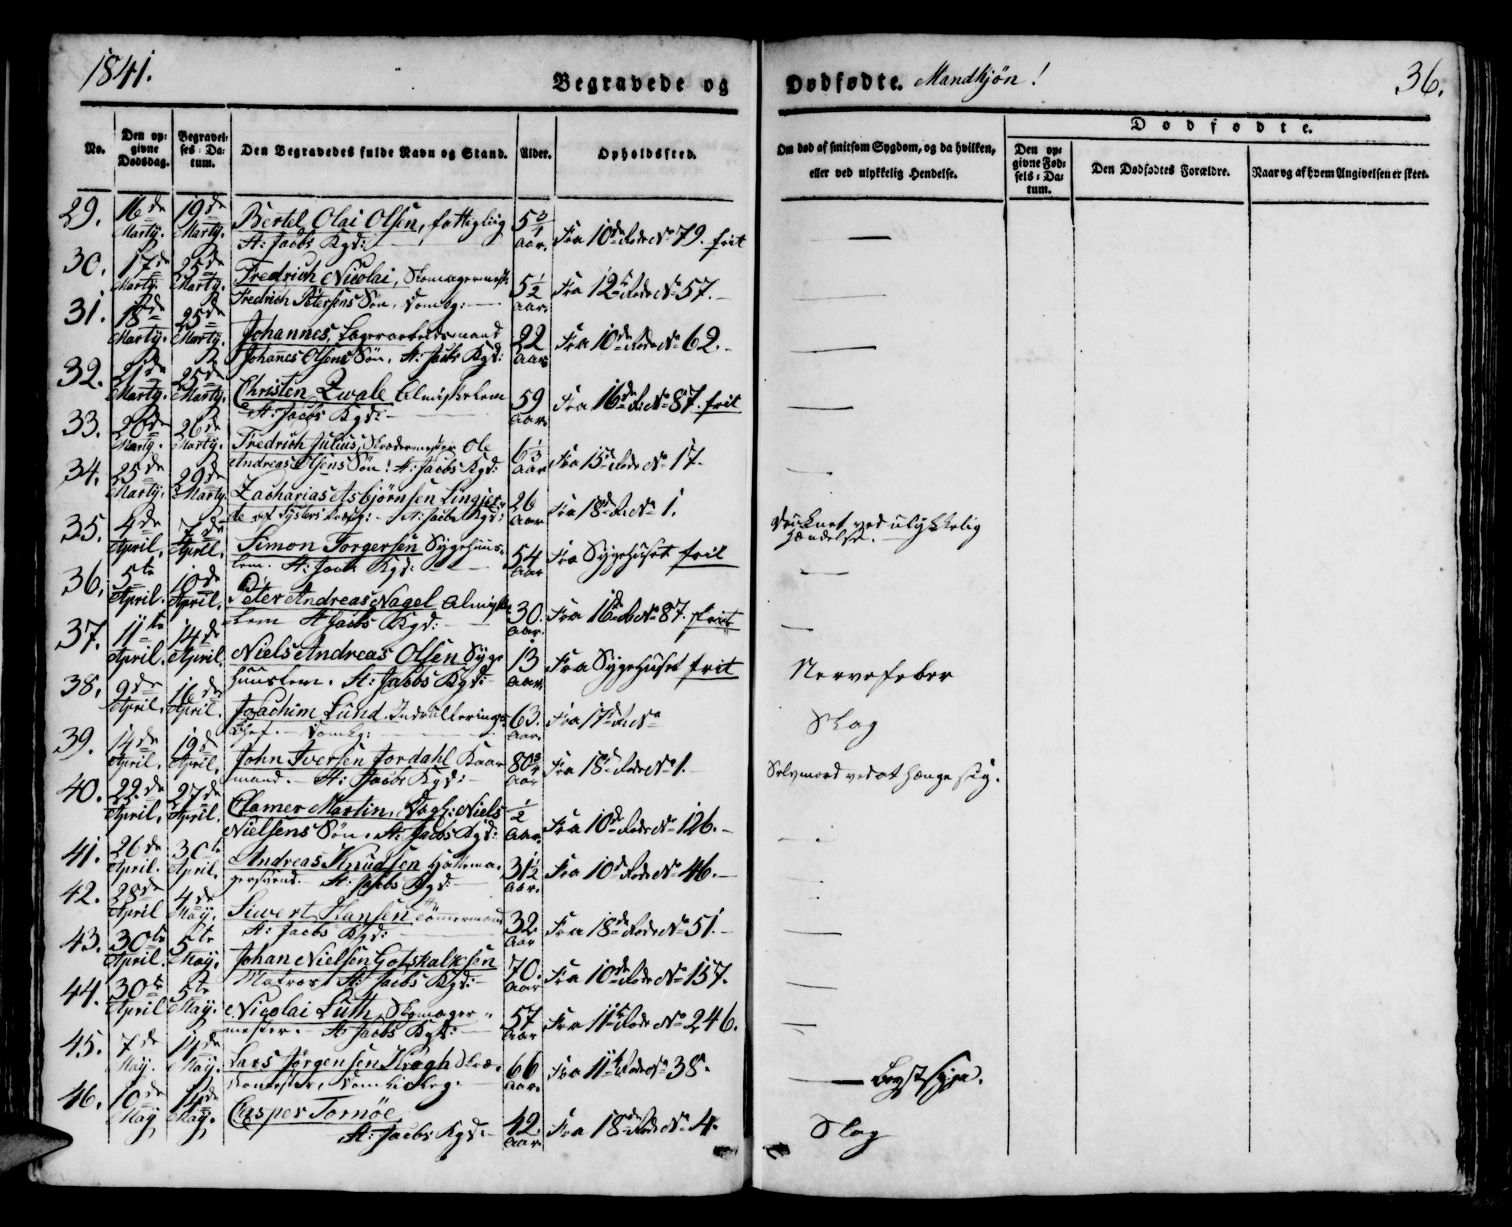 1841.
Begravede og
Dødfødte. Mandkjøn!
36.
No.
Den opgivne Dødsdag.
Begravelses-Datum.
Den Begravedes fulde Navn og Stand.
Alder.
Opholdssted.
Om død af smitsom Sygdom, og da hvilken,
eller ved ulykkelig Hendelse.
Dødfødte.
Den opgivne Fødsels-Datum.
Den Dødfødtes Forældre.
Naar og af hvem Angivelsen er skeet.
29. 16de Marty. 19de Marty. Bertel Olai Olsen, fattiglig 5 3/4 Aar. Fra 10de Rode No 79. frit
St: Jacobs Kgd: —
30. 17de Marty. 25de Marty. Fredrich Nicolai, Skomagermest: 5 1/2 Aar. Fra 12te Rode No 57. —
Fredrich Petersens Søn. Domkg: —
31. 18de Marty. 25de Marty. Johannes, Lagerarbeidsmand 22 Aar. Fra 10de Rode No 62. —
Johanes Olsens Søn. St: Jacobs Kgd:
32. 21de Marty. 25de Marty. Christen Zwale Almisselem 59 Aar. Fra 16de R: No 87. frit
St: Jacobs Kgd: —
33. 20de Marty. 26de Marty. Fredrich Julius, Skrædermester Ole Aar. Fra 15de Rode No 17.
Andreas Olsens Søn! St: Jacobs Kgd:
34. 25de Marty. 29de Marty. Zacharias Asbjørnsen 26 Aar. Fra 18de R: No 1. Drucknet ved ulykkelig
St: Jacobs Kgd: Hændelse. —
35. 4de April. April. Simon Torgersen Sygehuus- 54 Aar. Fra Sygehuset frit
lem. St: Jacobs Kgd: —
36. 5te April. 10de April. Peter Andreas Nagel Almisse- 30. Aar. Fra 16de R: No 87. frit
lem St Jacobs Kgd:
37. 11te April. 14de April. Niels Andreas Olsen Syge- 13 Aar. Fra Sygehuset frit Nervefeber
huuslem. St: Jacobs Kgd: —
38. 9de April. 16de April. Joachim Lund. Indrulerings- 63. Aar. Fra 17de R: No Slag
Chef. — Domkg: —
39. 14de April. 19de April. John Iversen Jordahl Kaar- 80 3/4 Aar. Fra 18de Rode No 1. — Selvmord ved at hænge sig.
mand. — St: Jacobs Kgd: —
40. 22de April. 27de April. Clamer Martin, Dagl: Niels 1/2 Aar. Fra 10de Rode No 126. —
Nielsens Søn. St: Jacobs Kgd:
41. 26de April. 30te April. Andreas Knudsen Hattema- 31 1/2 Aar. Fra 10de Rode No 46. —
gersvend. St: Jacobs Kgd: —
42. 28de April 4de May. Siwert Hansen Tømmermand 32 Aar Fra 18de Rode No 51. —
St: Jacobs Kgd: —
43. 30te April. 5te May. Johan Nielsen Gotskalksen 70. Aar Fra 10de Rode No 157.
Matros St: Jacobs Kgd: —
44. 30te April 5te May. Nicolai Lüth, Skomager- 57 Aar Fra 11te Rode No 246.
mester. St: Jacobs Kgd: —
45. 7de May. 14de May. Lars Jørgensen Krogh Skræ- 66 Aar. Fra 11te Rode No 38. — Brystsyge.
46. 10de May 14de May. Casper Tornöe 42 Aar. Fra 18de Rode No 4. Slag
St: Jacobs Kgd: —